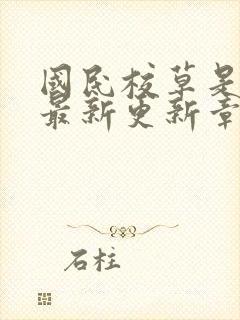 國民校草是
最新更新章
石柱